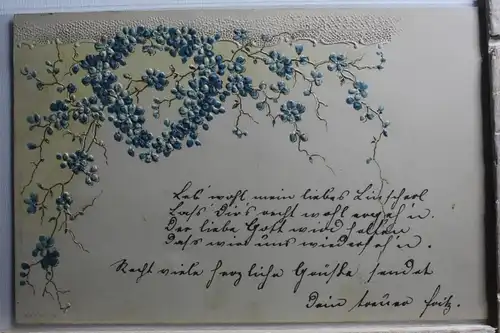 Leb wohl mein liebes Linscherl
Lass Dirs recht wohl ergeh'n.
Der liebe Gott wird helfen
Dass wir uns wiederseh'n.
Recht viele herzliche Grüsse sendet
Dein treuer Fritz.